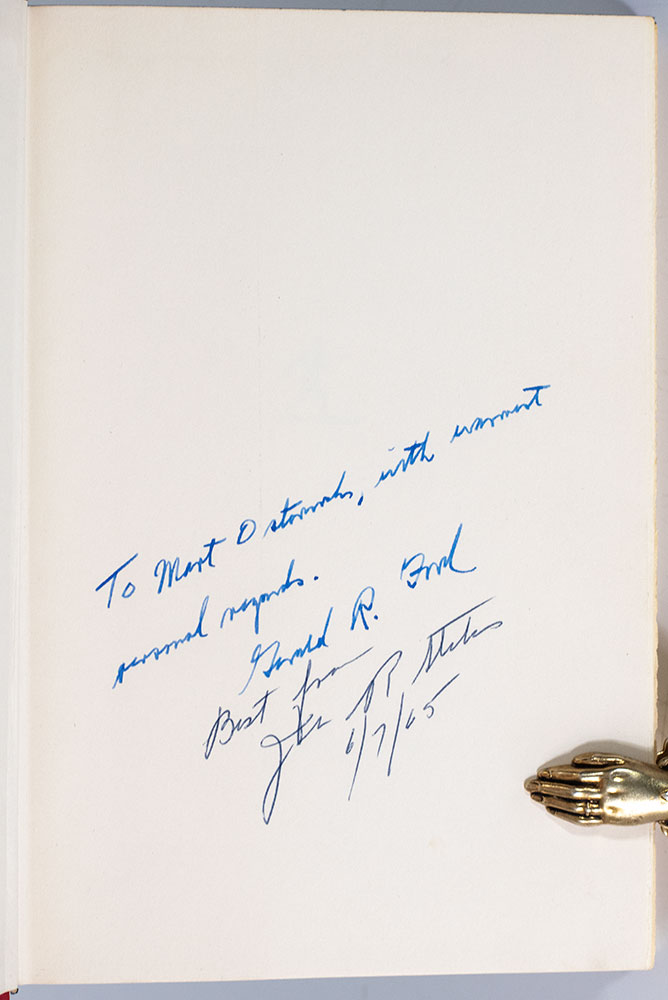 To Mart Ostomch, with warmest
personal regards.
Gerald R. Ford
Best from
John R Stiles
6/7/65